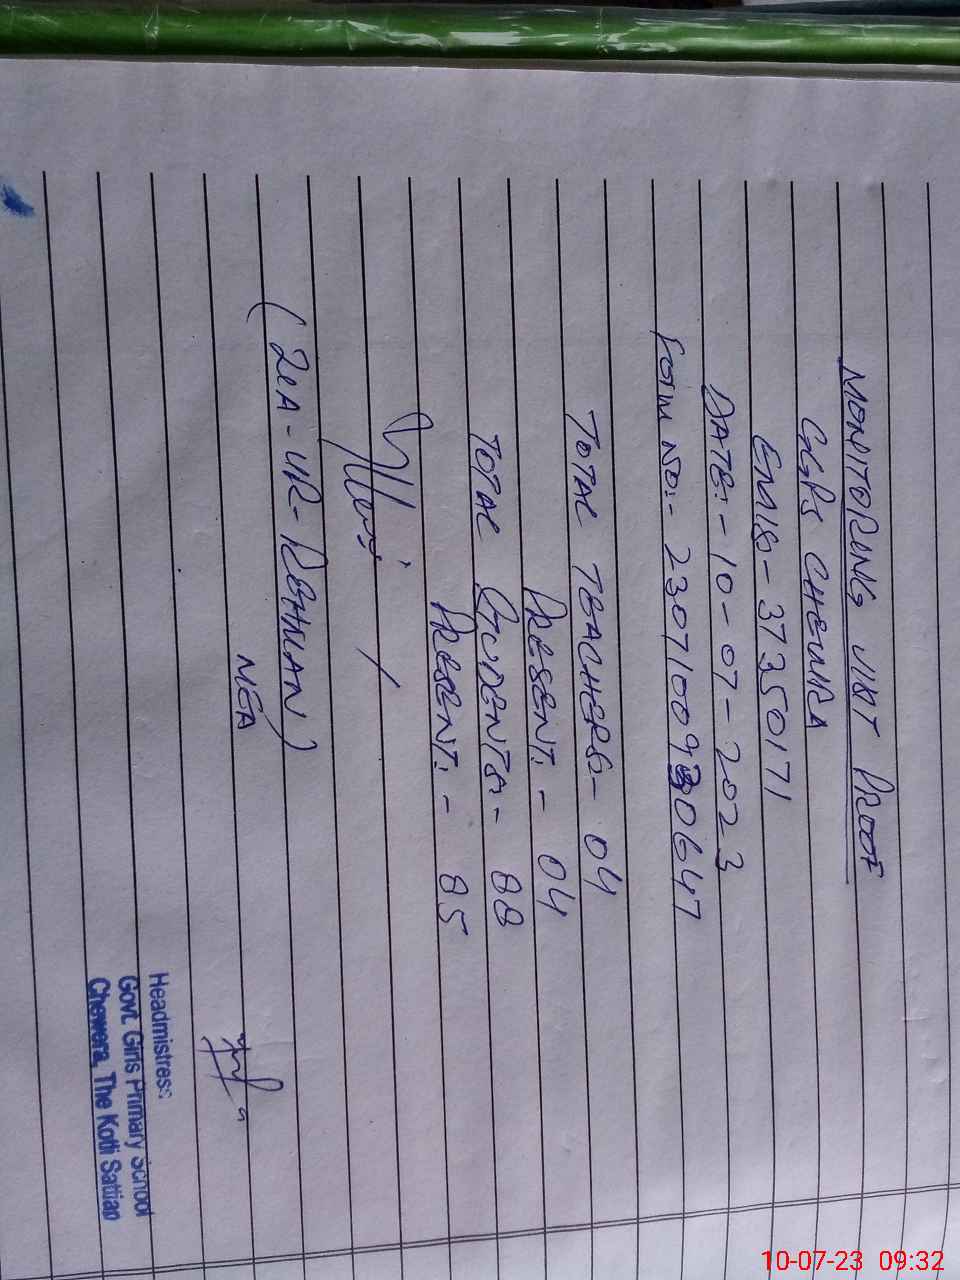 MONITORING VIST PROOF
GGPS CHEWRA
EMIS:- 37350171
DATE:- 10-07-2023
FORM NO:- 2307100930647
TOTAL TEACHERS:- 04
PRESENT:- 04
TOTAL STUDENTS:- 88
PRESENT:- 85
(ZIA-UR-REHMAN)
MEA
Headmistress
Govt. Girls Primary School
Chewera, The Kotli Sattian
10-07-23 09:32